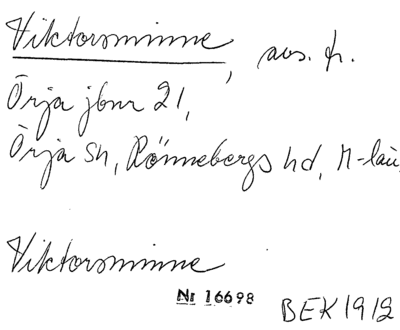 Viktorsminne, avs. fr.
Örja jbnr 21,
Örja sn, Rönnebergs hd, M-län.
Viktorsminne
Nr 16698
BEK 1912